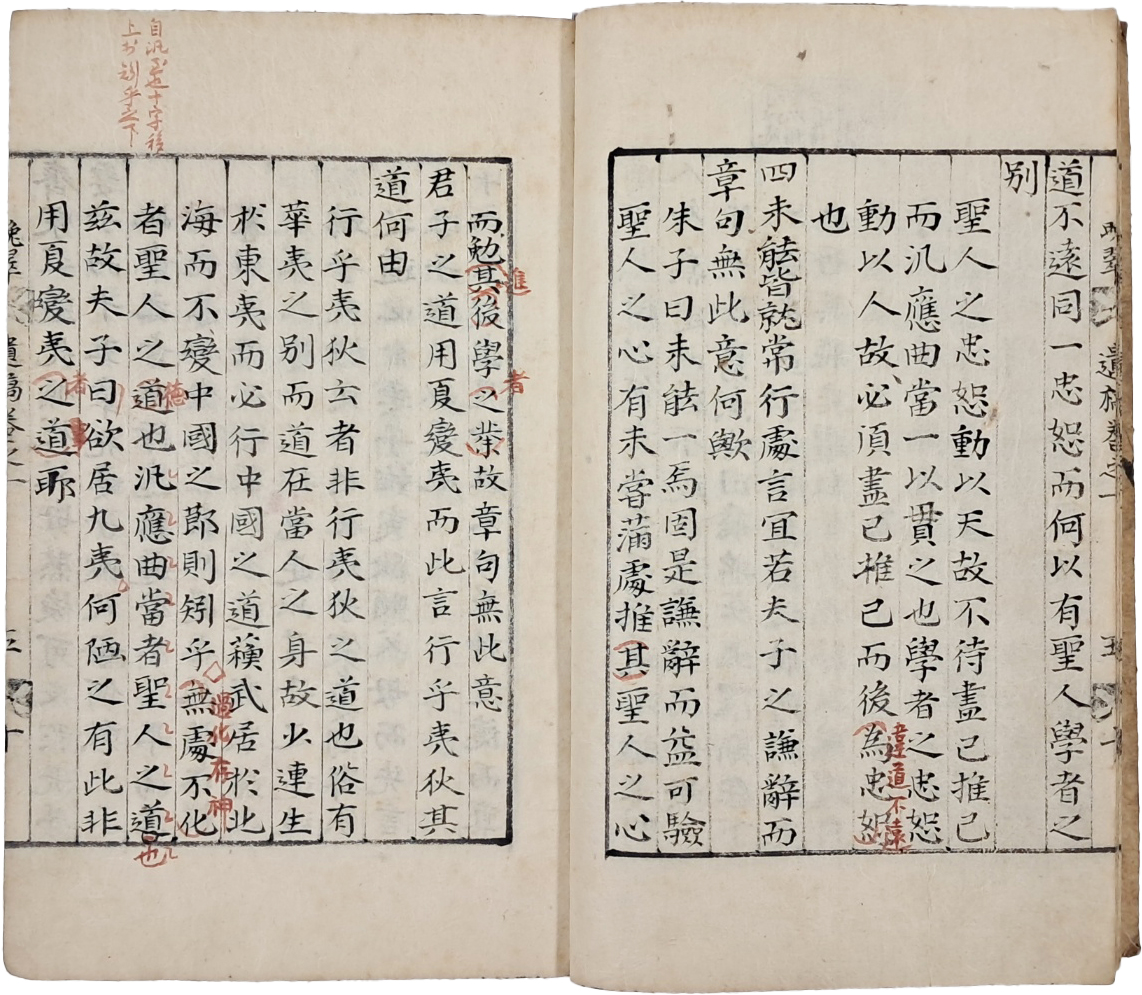 道不遠同一忠恕而何以有聖人學者之
別
聖人之忠恕動以天故不待盡己推己
而汎應曲當一以貫之也學者之忠恕
動以人故必須盡己推己而後為忠恕
違道不遠
也
四未能皆就常行處言宜若夫子之謙辭而
章句無此意何歟
朱子曰未能一焉固是謙辭而益可驗
聖人之心有未嘗滿處推其聖人之心
而勉其後學之業故章句無此意
進
者
君子之道用夏變夷而此言行乎夷狄其
道何由
行乎夷狄云者非行夷狄之道也俗有
華夷之別而道在當人之身故少連生
於東夷而必行中國之道蘓武居於北
海而不變中國之節則矧乎無處不化
過化存神
者聖人之道也汎應曲當者聖人之道
德
也
玆故夫子曰欲居九夷何陋之有此非
用夏變夷之道耶
者
遺稿卷之一
五
十